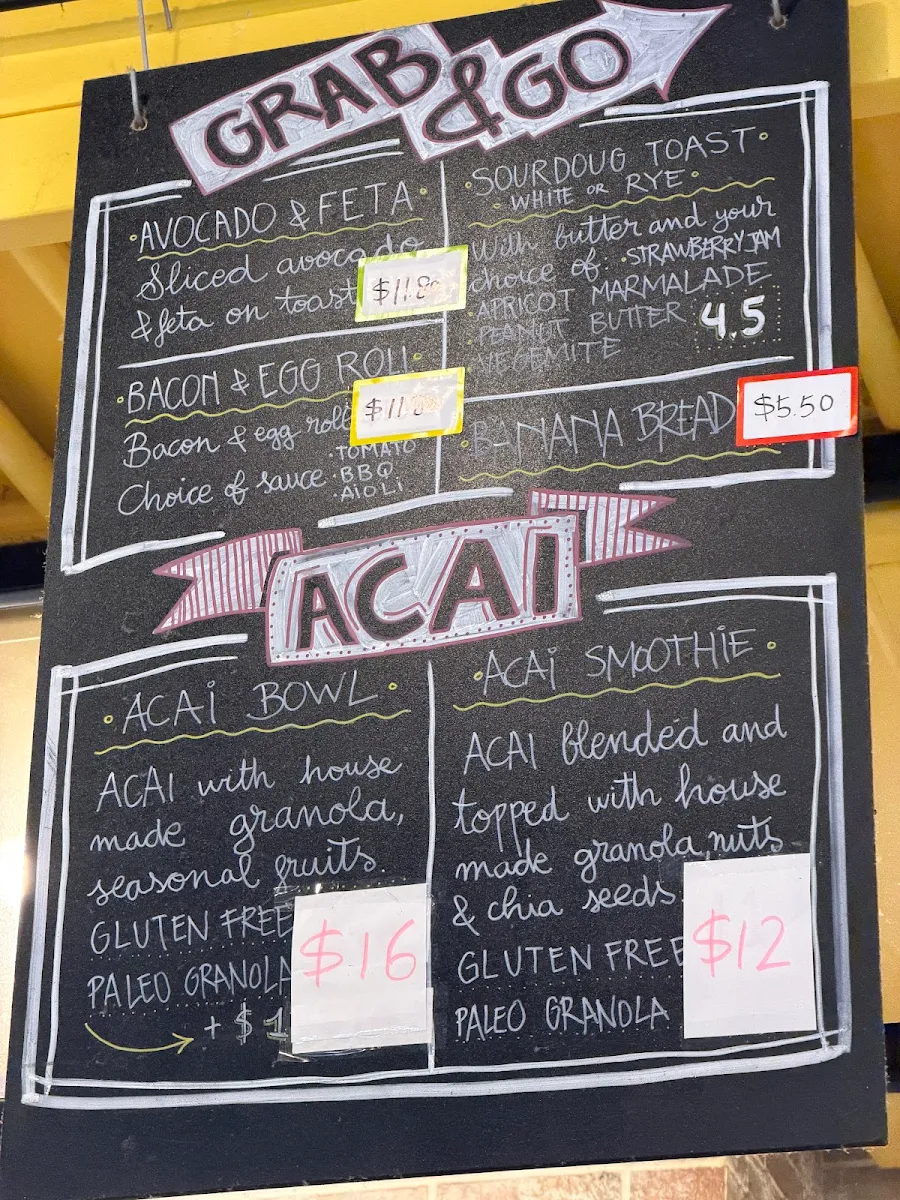 GRAB & GO
·AVOCADO & FETA·
Sliced avocado
& feta on toast
$11.80
·BACON & EGG ROLL·
Bacon & egg roll
$11.80
Choice of sauce
·TOMATO
·BBQ
·AIOLI
·SOURDOUG TOAST·
·WHITE OR RYE·
With butter and your
choice of: ·STRAWBERRY JAM
·APRICOT MARMALADE
·PEANUT BUTTER
·VEGEMITE
4.5
·BANANA BREAD
$5.50
ACAI
·ACAI BOWL·
ACAI with house
made granola,
seasonal fruits.
GLUTEN FREE
PALEO GRANOLA
+ $1
$16
·ACAI SMOOTHIE·
ACAI blended and
topped with house
made granola, nuts
& chia seeds.
GLUTEN FREE
PALEO GRANOLA
$12